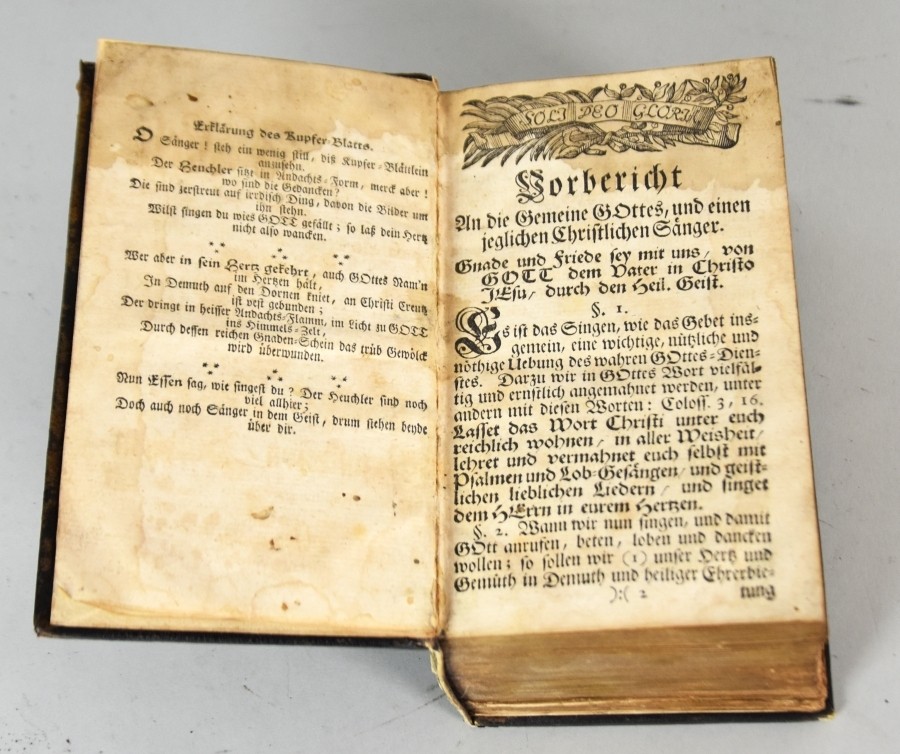 Erklärung des Kupfer-Blatts.
O Sänger! steh ein wenig still, diß Kupfer-Blättlein
anzusehn.
Der Heuchler sitzt in Andachts-Form, merck aber!
wo sind die Gedancken?
Die sind zerstreut auf irrdisch Ding, davon die Bilder um
ihn stehn.
Wilst singen du wies GOTT gefällt; so laß dein Hertz
nicht also wancken.
Wer aber in sein Hertz gekehrt, auch GOttes Nam'n
im Hertzen hält,
In Demuth auf den Dornen kniet, an Christi Creutz
ist vest gebunden;
Der dringt in heisser Andachts-Flamm, im Licht zu GOTT
ins Himmels-Zelt,
Durch dessen reichen Gnaden-Schein das trüb Gewölck
wird überwunden.
Nun Essen sag, wie singest du? Der Heuchler sind noch
viel allhier;
Doch auch noch Sänger in dem Geist, drum stehen beyde
über dir.
SOLI DEO GLORIA
Vorbericht
An die Gemeine GOttes, und einen
jeglichen Christlichen Sänger.
Gnade und Friede sey mit uns, von
GOTT dem Vater in Christo
JEsu, durch den Heil. Geist.
§. 1.
Es ist das Singen, wie das Gebet ins-
gemein, eine wichtige, nützliche und
nöthige Uebung des wahren GOttes-Dien-
stes. Darzu wir in GOttes Wort vielfäl-
tig und ernstlich angemahnet werden, unter
andern mit diesen Worten: Coloss. 3, 16.
Lasset das Wort Christi unter euch
reichlich wohnen, in aller Weisheit,
lehret und vermahnet euch selbst mit
Psalmen und Lob-Gesängen, und geist-
lichen lieblichen Liedern, und singet
dem HErrn in eurem Hertzen.
§. 2. Wann wir nun singen, und damit
GOtt anrufen, beten, loben und dancken
wollen; so sollen wir (1) unser Hertz und
Gemüth in Demuth und heiliger Ehrerbie-
):( 2 tung